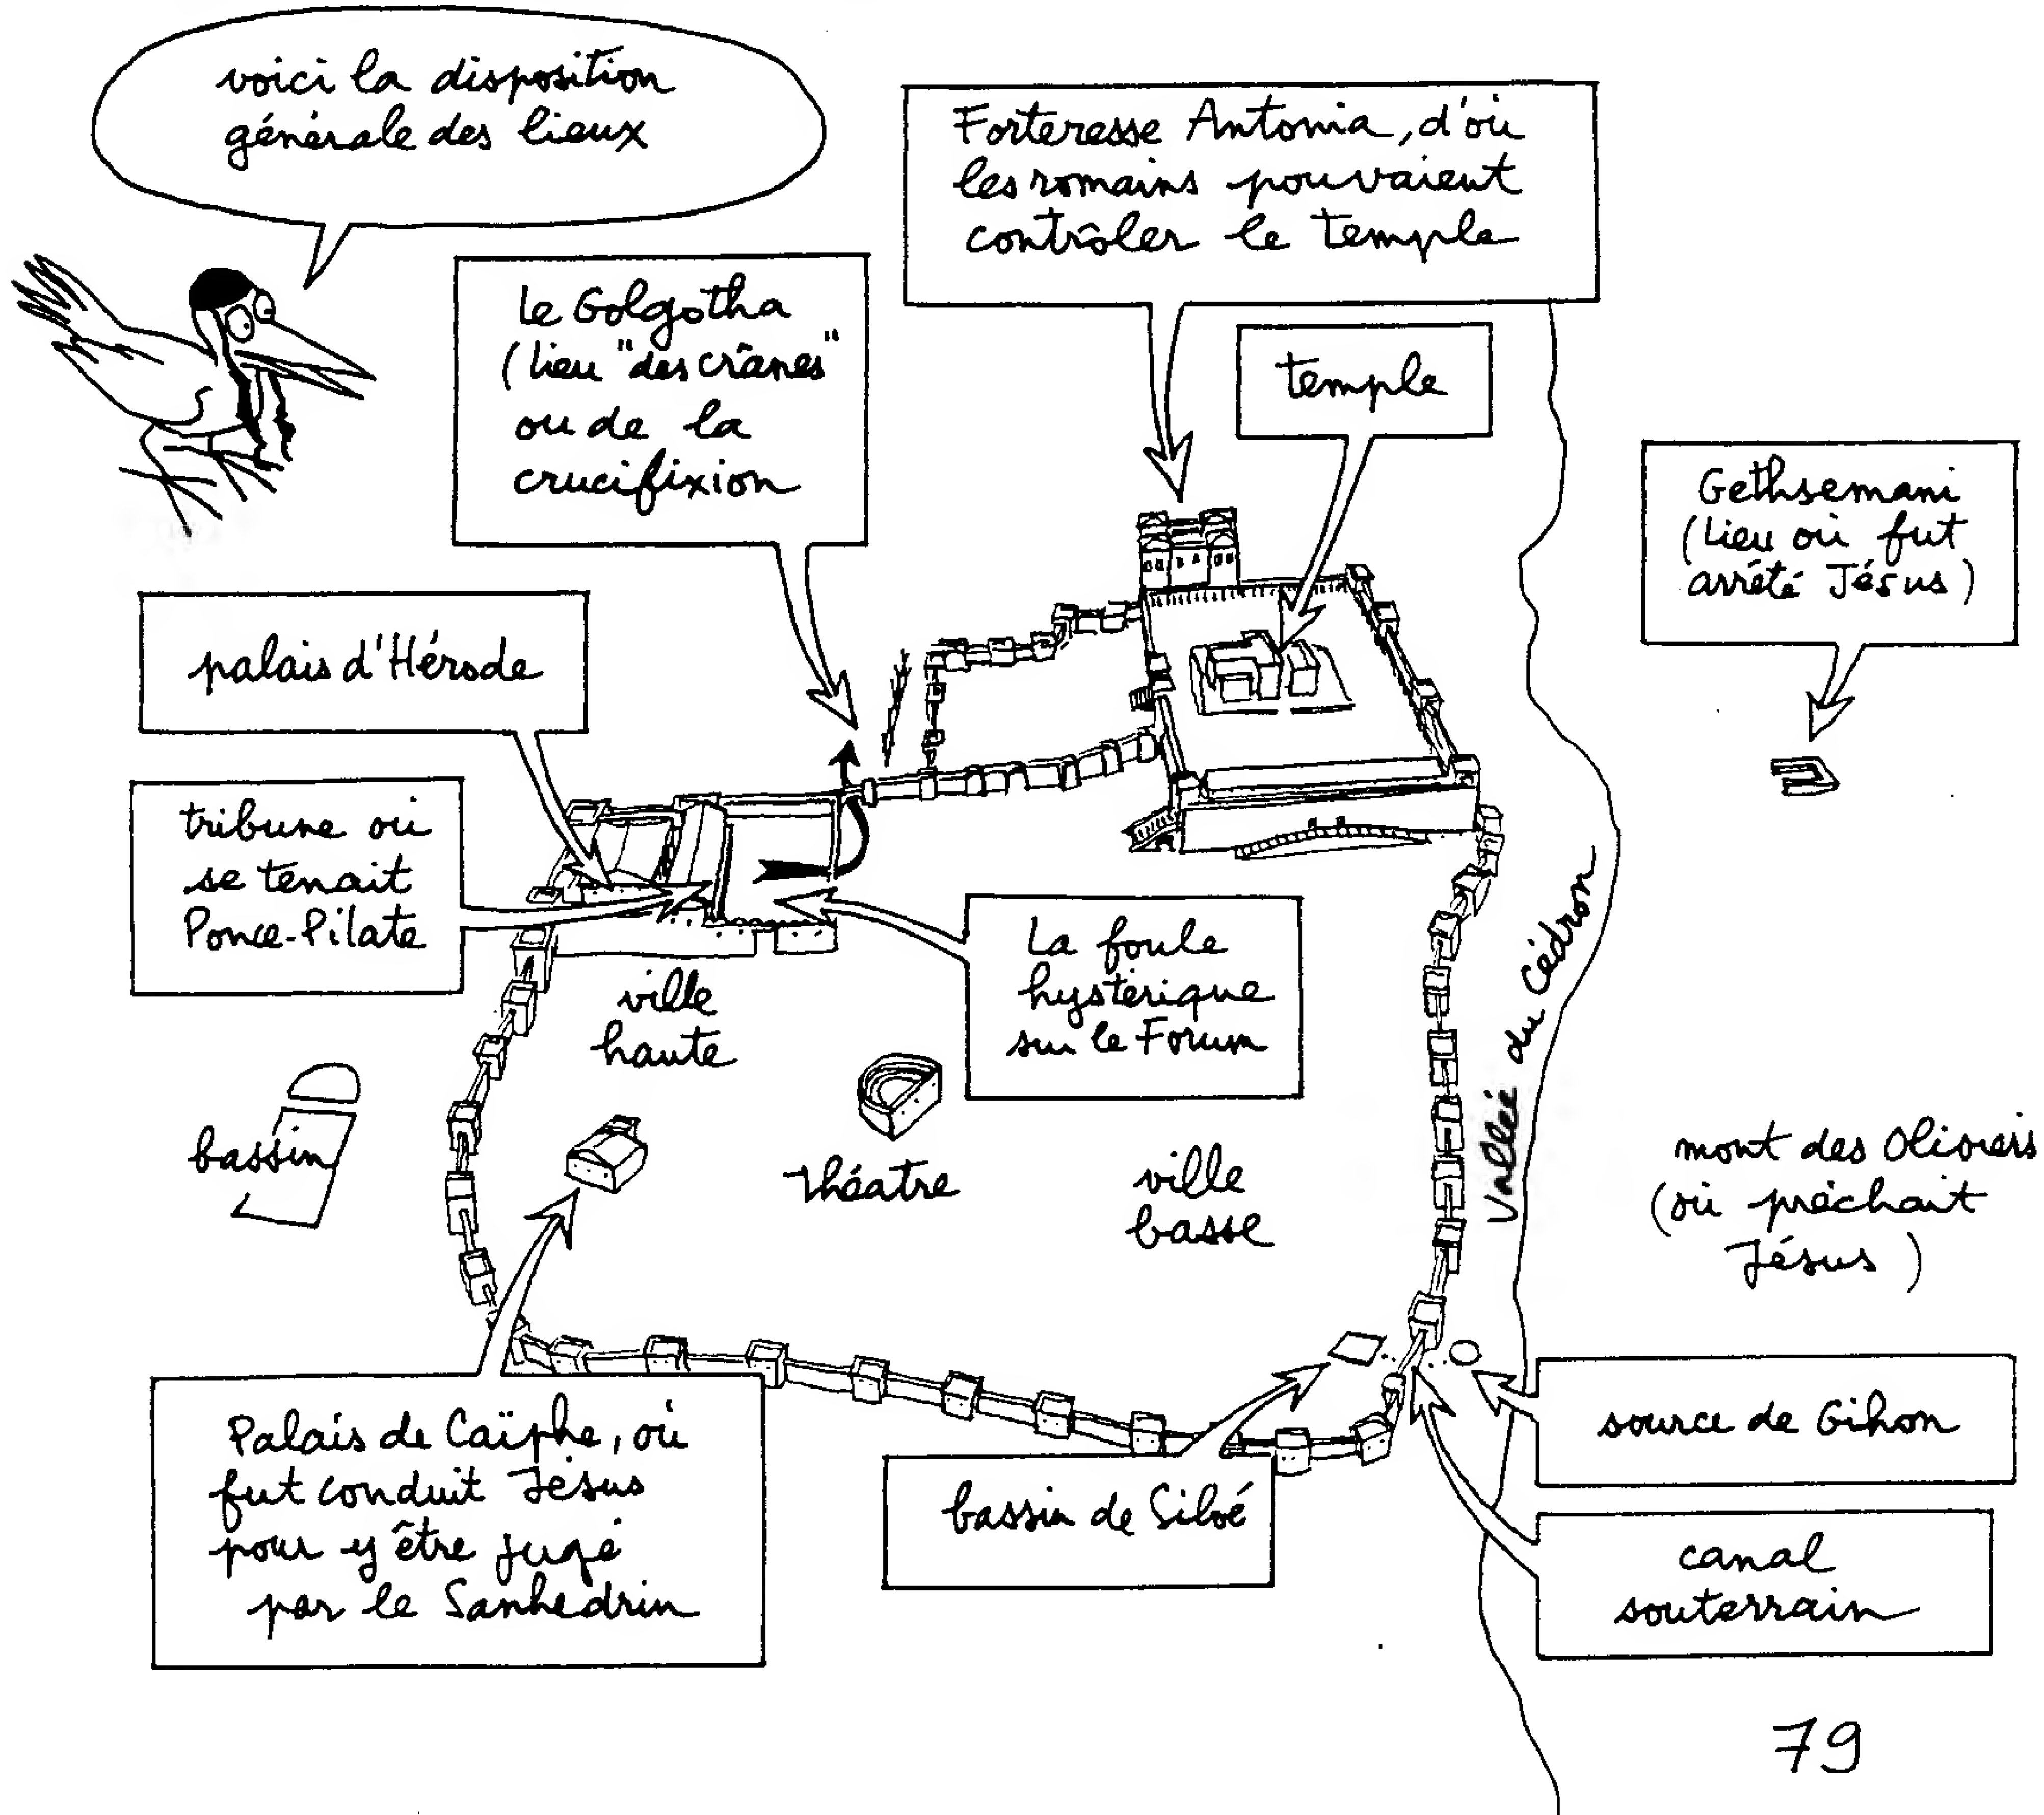 voici la disposition
générale des lieux
Forteresse Antonia, d'où
les romains pouvaient
contrôler le temple
Le Golgotha
(lieu "des crânes"
ou de la
crucifixion
temple
Gethsemani
(Lieu où fut
arrêté Jésus)
palais d'Hérode
tribune où
se tenait
Ponce-Pilate
La foule
hystérique
sur le Forum
ville
haute
bassin
théatre
ville
basse
Vallée du Cédron
mont des Oliviers
(où prêchait
Jésus)
Palais de Caïphe, où
fut conduit Jésus
pour y être jugé
par le Sanhedrin
bassin de Siloé
source de Gihon
canal
souterrain
79